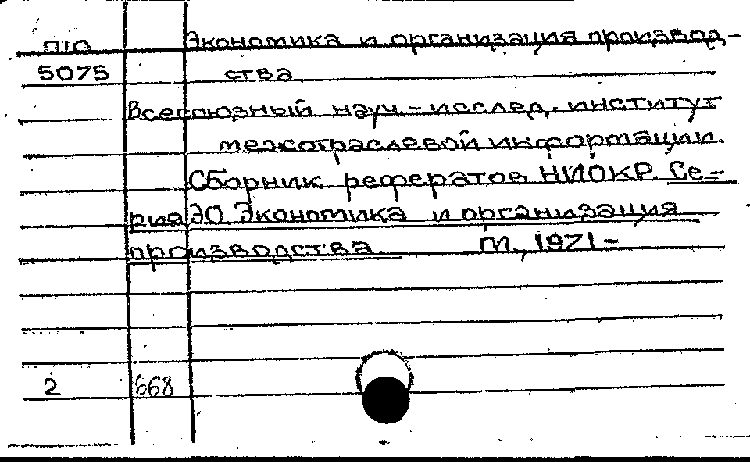 П10 Экономика и организация производ-
5075 ства
Всесоюзный науч.-исслед. институт
межотраслевой информации.
Сборник рефератов НИОКР. Се-
рия ЭО. Экономика и организация
производства. М., 1971-
2 668